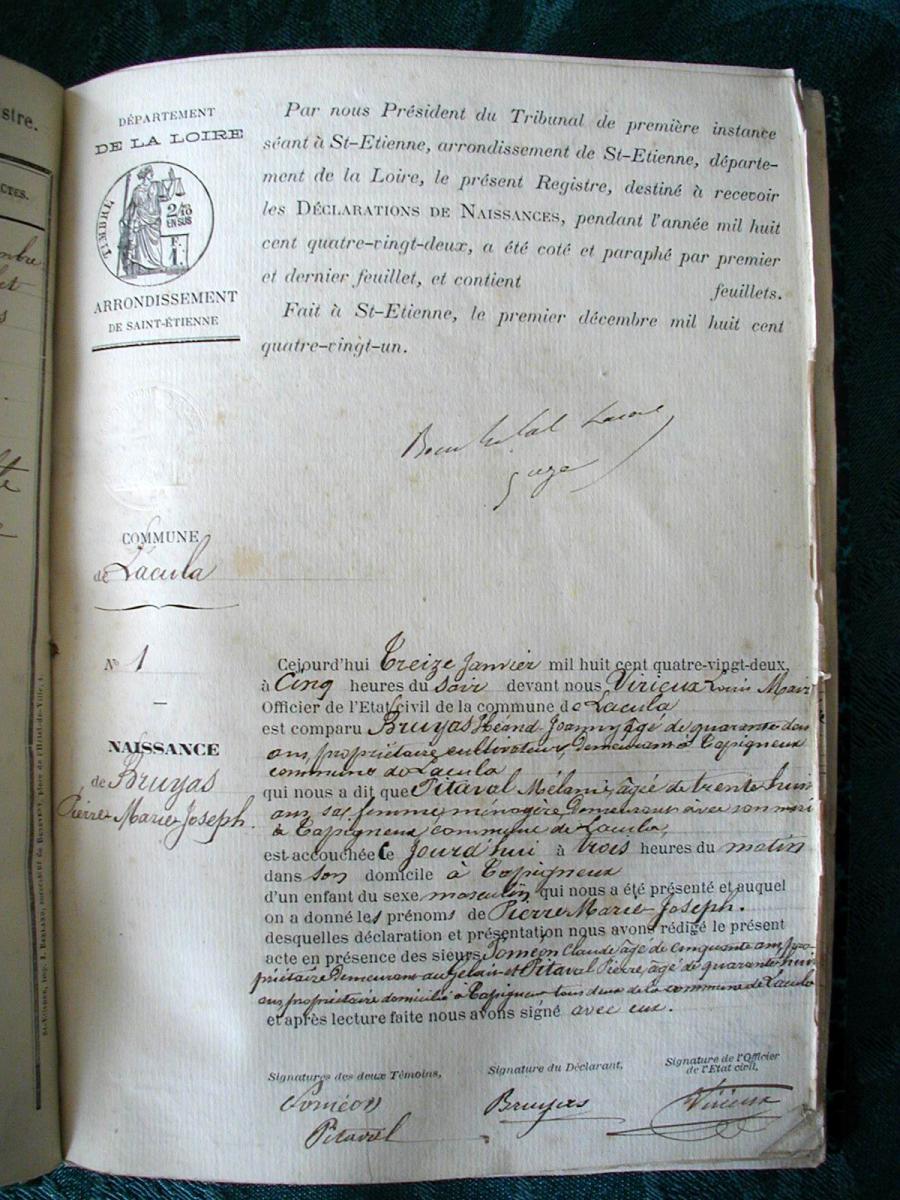 DÉPARTEMENT
DE LA LOIRE
TIMBRE
2/10
EN SUS
F.
1.
ARRONDISSEMENT
DE SAINT-ÉTIENNE
Par nous Président du Tribunal de première instance
séant à St-Etienne, arrondissement de St-Etienne, départe-
ment de la Loire, le présent Registre, destiné à recevoir
les DÉCLARATIONS DE NAISSANCES, pendant l'année mil huit
cent quatre-vingt-deux, a été coté et paraphé par premier
et dernier feuillet, et contient feuillets.
Fait à St-Etienne, le premier décembre mil huit cent
quatre-vingt-un.
COMMUNE
de Lacula
N° 1
NAISSANCE
de Bruyas
Pierre Marie Joseph.
Cejourd'hui Treize Janvier mil huit cent quatre-vingt-deux,
à Cinq heures du soir devant nous Virieux Louis Maire
Officier de l'Etat civil de la commune de Lacula
est comparu Bruyas Jeanny âgé de quarante deux
ans, propriétaire cultivateur, demeurant à Capigneux
commune de Lacula
qui nous a dit que Pitaval Mélanie, âgée de trente huit
ans, sa femme, ménagère, demeurant avec son mari
à Capigneux commune de Lacula,
est accouchée Ce jourd'hui à trois heures du matin
dans son domicile à Capigneux
d'un enfant du sexe masculin qui nous a été présenté et auquel
on a donné les prénoms de Pierre Marie Joseph.
desquelles déclaration et présentation nous avons rédigé le présent
acte en présence des sieurs Poméon Claude âgé de cinquante ans pro-
priétaire demeurant au et Pitaval Pierre, âgé de quarante huit
ans propriétaire domicilié à Capigneux tous deux de la commune de Lacula
et après lecture faite nous avons signé avec eux.
Signatures des deux Témoins,
Signature du Déclarant,
Signature de l'Officier
de l'Etat civil,
Poméon
Pitaval
Bruyas
Virieux
stre.
CTES.